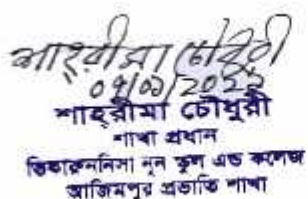 শাহরীমা চৌধুরী
০৭/০১/2022
শাহরীমা চৌধুরী
শাখা প্রধান
ভিকারুননিসা নূন স্কুল এন্ড কলেজ
আজিমপুর প্রভাতি শাখা